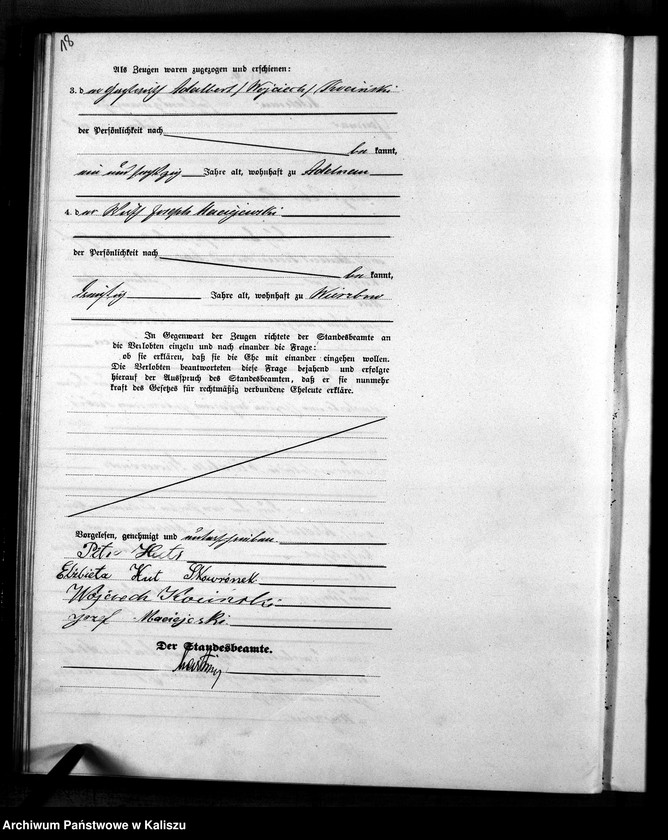 18
Als Zeugen waren zugezogen und erschienen:
3. der Adalbert /Wojciech/ Kociński
der Persönlichkeit nach
be kannt,
ein und sechzig Jahre alt, wohnhaft zu Adelnau
4. der Joseph Maciejewski
der Persönlichkeit nach
be kannt,
Jahre alt, wohnhaft zu
In Gegenwart der Zeugen richtete der Standesbeamte an
die Verlobten einzeln und nach einander die Frage:
ob sie erklären, daß sie die Ehe mit einander eingehen wollen.
Die Verlobten beantworteten diese Frage bejahend und erfolgte
hierauf der Ausspruch des Standesbeamten, daß er sie nunmehr
kraft des Gesetzes für rechtmäßig verbundene Eheleute erkläre.
Vorgelesen, genehmigt und unterschrieben
Huts
Elżbieta Hut Skowronek
Wojciech Kociński
Józef Maciejeski
Der Standesbeamte.
Archiwum Państwowe w Kaliszu